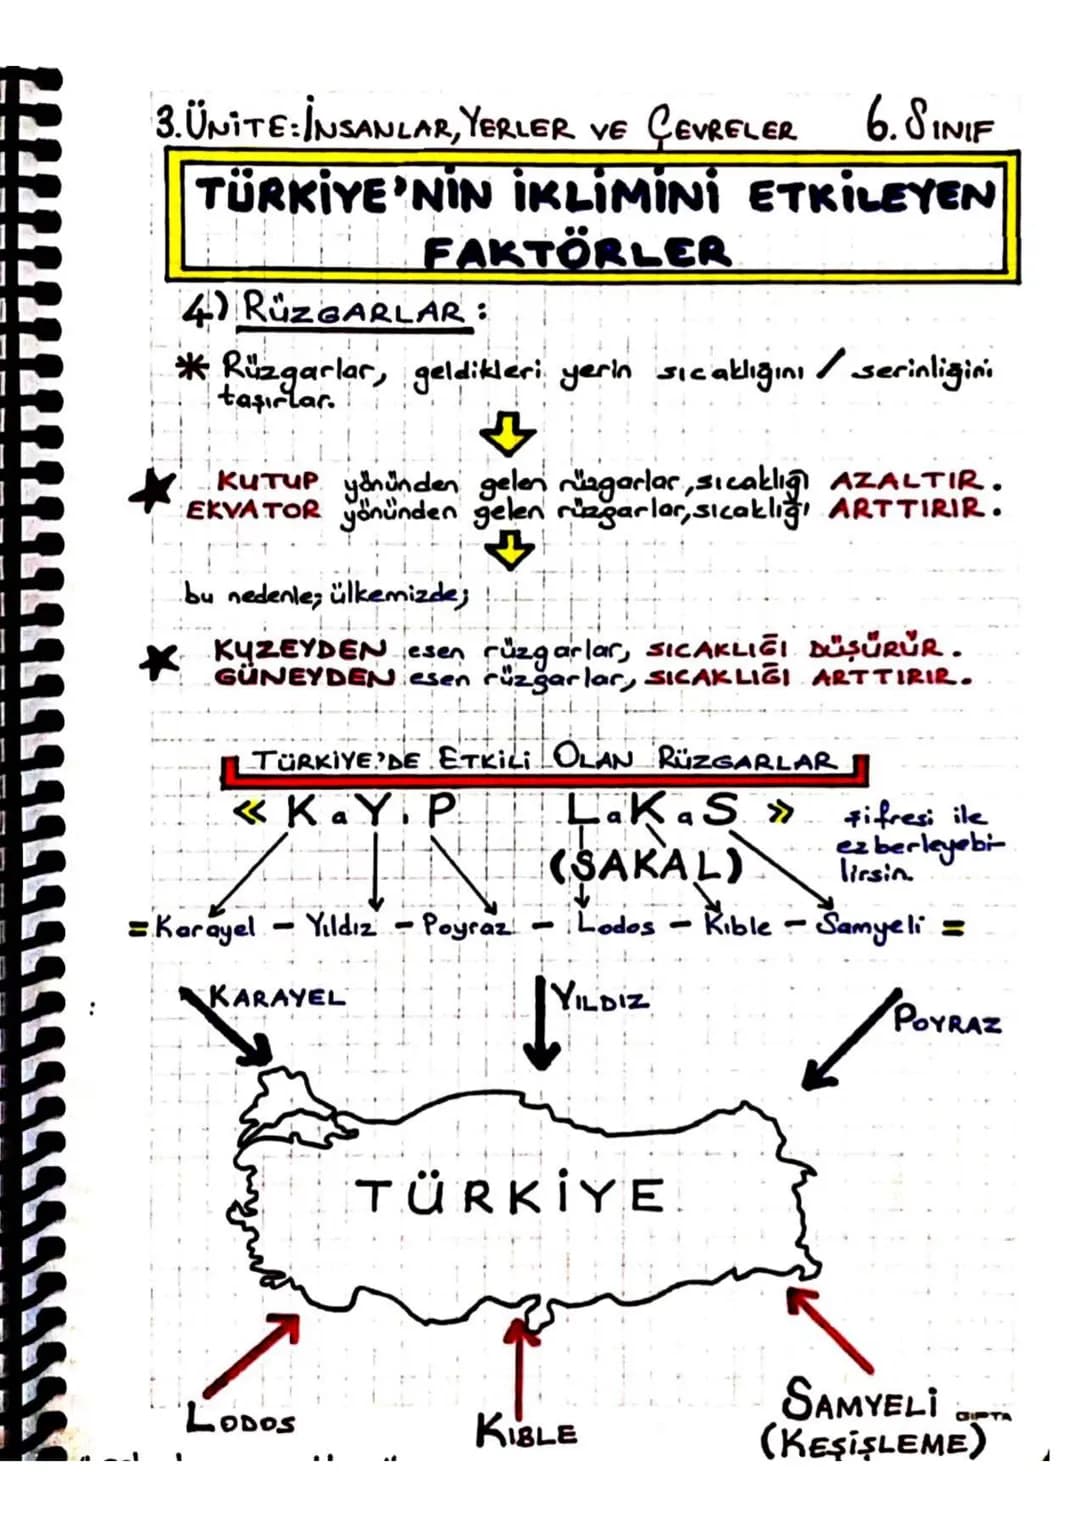 3.ÜNİTE:İNSANLAR, YERLER VE ÇEVRELER 6. SINIF
TÜRKİYE'NİN İKLİMİNİ ETKİLEYEN
FAKTÖRLER
4) RÜZGARLAR:
* Rüzgarlar, geldikleri yerin sıcaklığını / serinliğini
taşırlar.
KUTUP yönünden gelen rüzgarlar, sıcaklığı AZALTIR.
EKVATOR yönünden gelen rüzgarlar, sıcaklığı ARTTIRIR.
bu nedenle; ülkemizde;
KUZEYDEN esen rüzgarlar, SICAKLIĞI DÜŞÜRÜR.
GÜNEYDEN esen rüzgarlar, SICAKLIĞI ARTTIRIR.
TÜRKİYE'DE ETKİLİ OLAN RÜZGARLAR
« KaYıP LaKaS » şifresi ile
(SAKAL) ezberleyebi-
lirsin.
= Karayel - Yıldız - Poyraz - Lodos - Kıble - Samyeli =
KARAYEL YILDIZ POYRAZ
TÜRKİYE
LODOS KIBLE SAMYELİ
(KEŞİŞLEME)
GIPTA